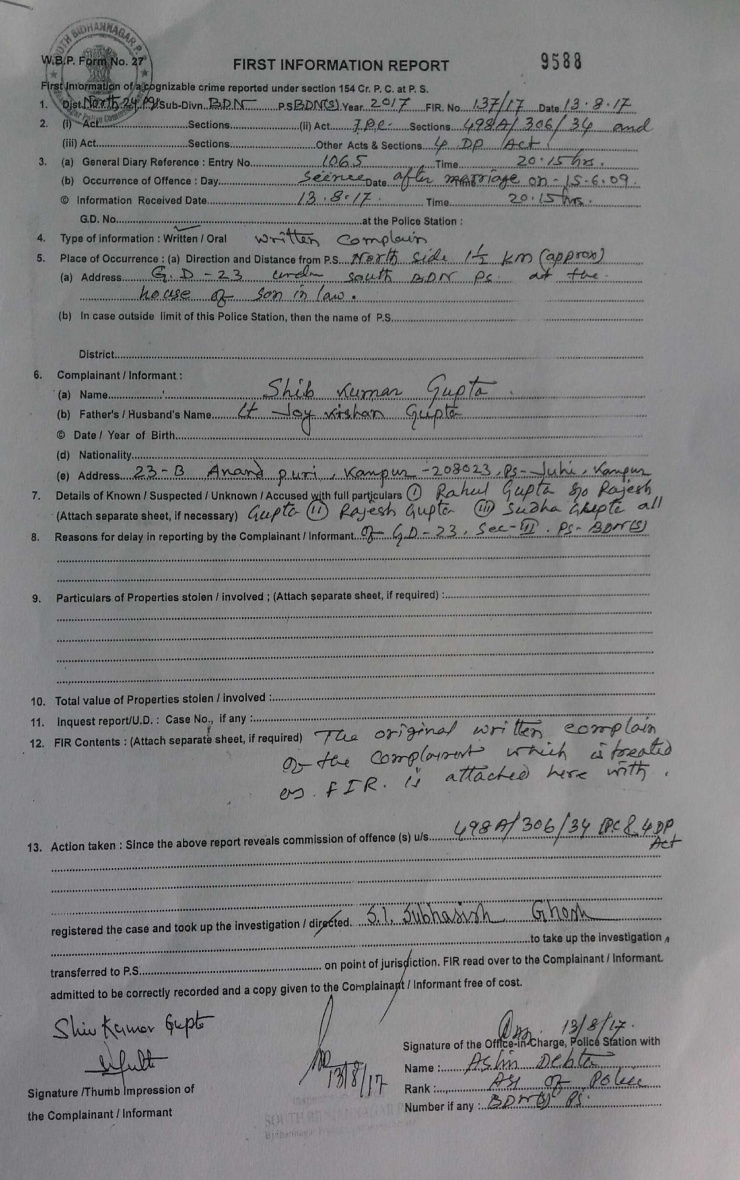 SOUTH BIDHANNAGAR P.S.
W.B.P. Form No. 27
FIRST INFORMATION REPORT
9588
First Information of a cognizable crime reported under section 154 Cr. P. C. at P. S.
1. Dist. North 24 Pgs/Sub-Divn. BDN P.S BDN(S) Year 2017 FIR. No. 137/17 Date 13.8.17
2. (i) Act Sections (ii) Act I.P.C. Sections 498A/306/34 and
(iii) Act Sections Other Acts & Sections 4 DP Act.
3. (a) General Diary Reference : Entry No. 1065 Time 20.15 hrs.
(b) Occurrence of Offence : Day Seince Date after marriage on - 15-6.09.
© Information Received Date 13.8.17. Time 20.15 hrs.
G.D. No. at the Police Station :
4. Type of information : Written / Oral written complain
5. Place of Occurrence : (a) Direction and Distance from P.S. North side 1½ km (approx)
(a) Address G.D-23 under South BDN PS. at the
house of son in law.
(b) In case outside limit of this Police Station, then the name of P.S.
District
6. Complainant / Informant :
(a) Name Shib Kumar Gupta.
(b) Father's / Husband's Name Lt Joy Kishan Gupta
© Date / Year of Birth
(d) Nationality
(e) Address 23-B Anand puri, Kanpur-208023, PS-Juhi, Kanpur
7. Details of Known / Suspected / Unknown / Accused with full particulars (i) Rahul Gupta S/o Rajesh
(Attach separate sheet, if necessary) Gupta (ii) Rajesh Gupta (iii) Sudha Gupta all
8. Reasons for delay in reporting by the Complainant / Informant. of GD-23, Sec-III. PS-BDN(S)
9. Particulars of Properties stolen / involved ; (Attach separate sheet, if required) :
10. Total value of Properties stolen / involved :
11. Inquest report/U.D. : Case No., if any :
12. FIR Contents : (Attach separate sheet, if required) The original written complain
of the complainant which is treated
as FIR. is attached here with.
13. Action taken : Since the above report reveals commission of offence (s) u/s. 498A/306/34 IPC & 4 DP
Act
registered the case and took up the investigation / directed. S.I. Subhasish Ghosh
to take up the investigation
transferred to P.S. on point of jurisdiction. FIR read over to the Complainant / Informant.
admitted to be correctly recorded and a copy given to the Complainant / Informant free of cost.
Shiv Kumar Gupta
13/8/17
13/8/17.
Signature of the Office-in-Charge, Police Station with
Name : Ashim Debta
Signature /Thumb Impression of
Rank : ASI of Police
the Complainant / Informant
Number if any : BDN(S) PS.